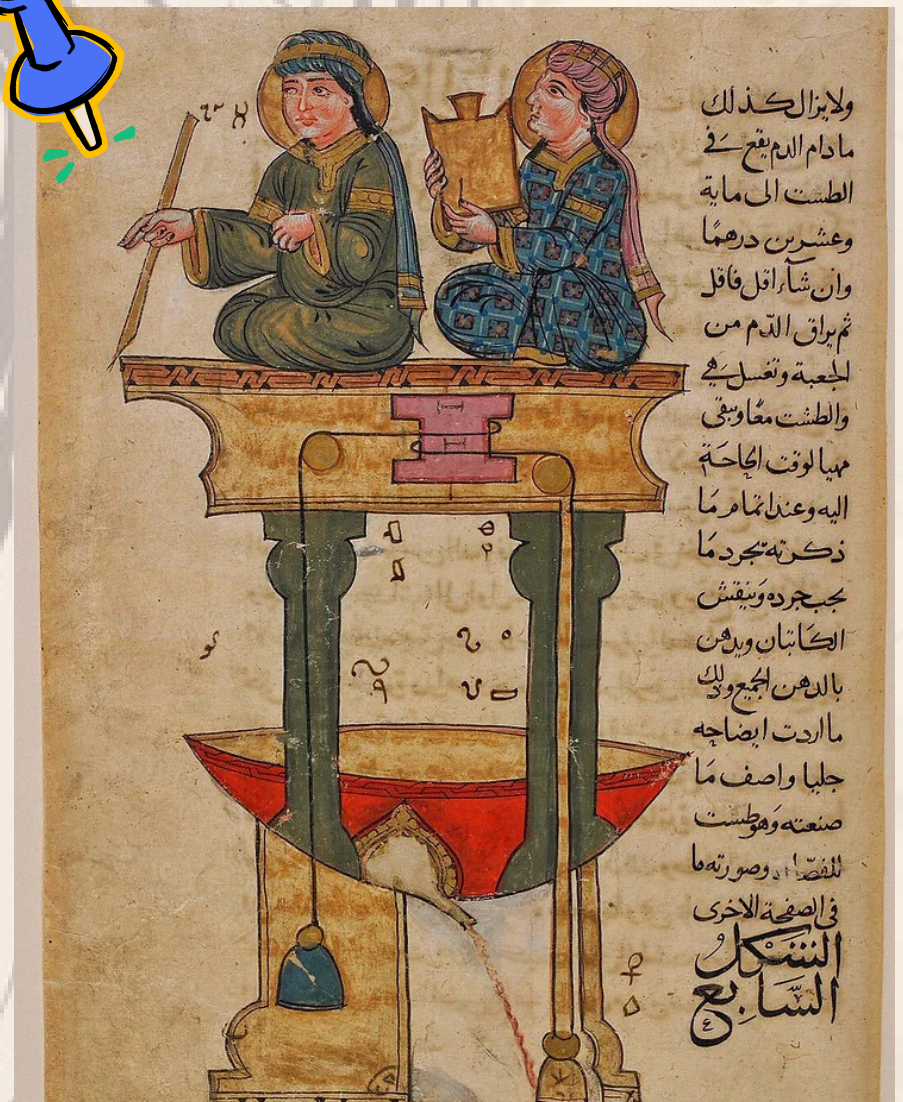 ولا يزال كذلك
مادام الدم يقع في
الطشت الى ماية
وعشرين درهما
وان شآء اقل فاقل
ثم يراق الدّم من
الجعبة وتغسل هي
والطشت معًا ويبقى
مهيا لوقت الحاجة
اليه وعند اتمام مَا
ذكرته يجرد مَا
يجب جرده وَينقش
الكاتبان ويدهن
بالدهن الجميع وذلك
ما اردت ايضاحه
جليا واصف مَا
صنعته وَهو طشت
للفصّاد وصورته ما
في الصفحة الاخرى
الشكل
السّابع